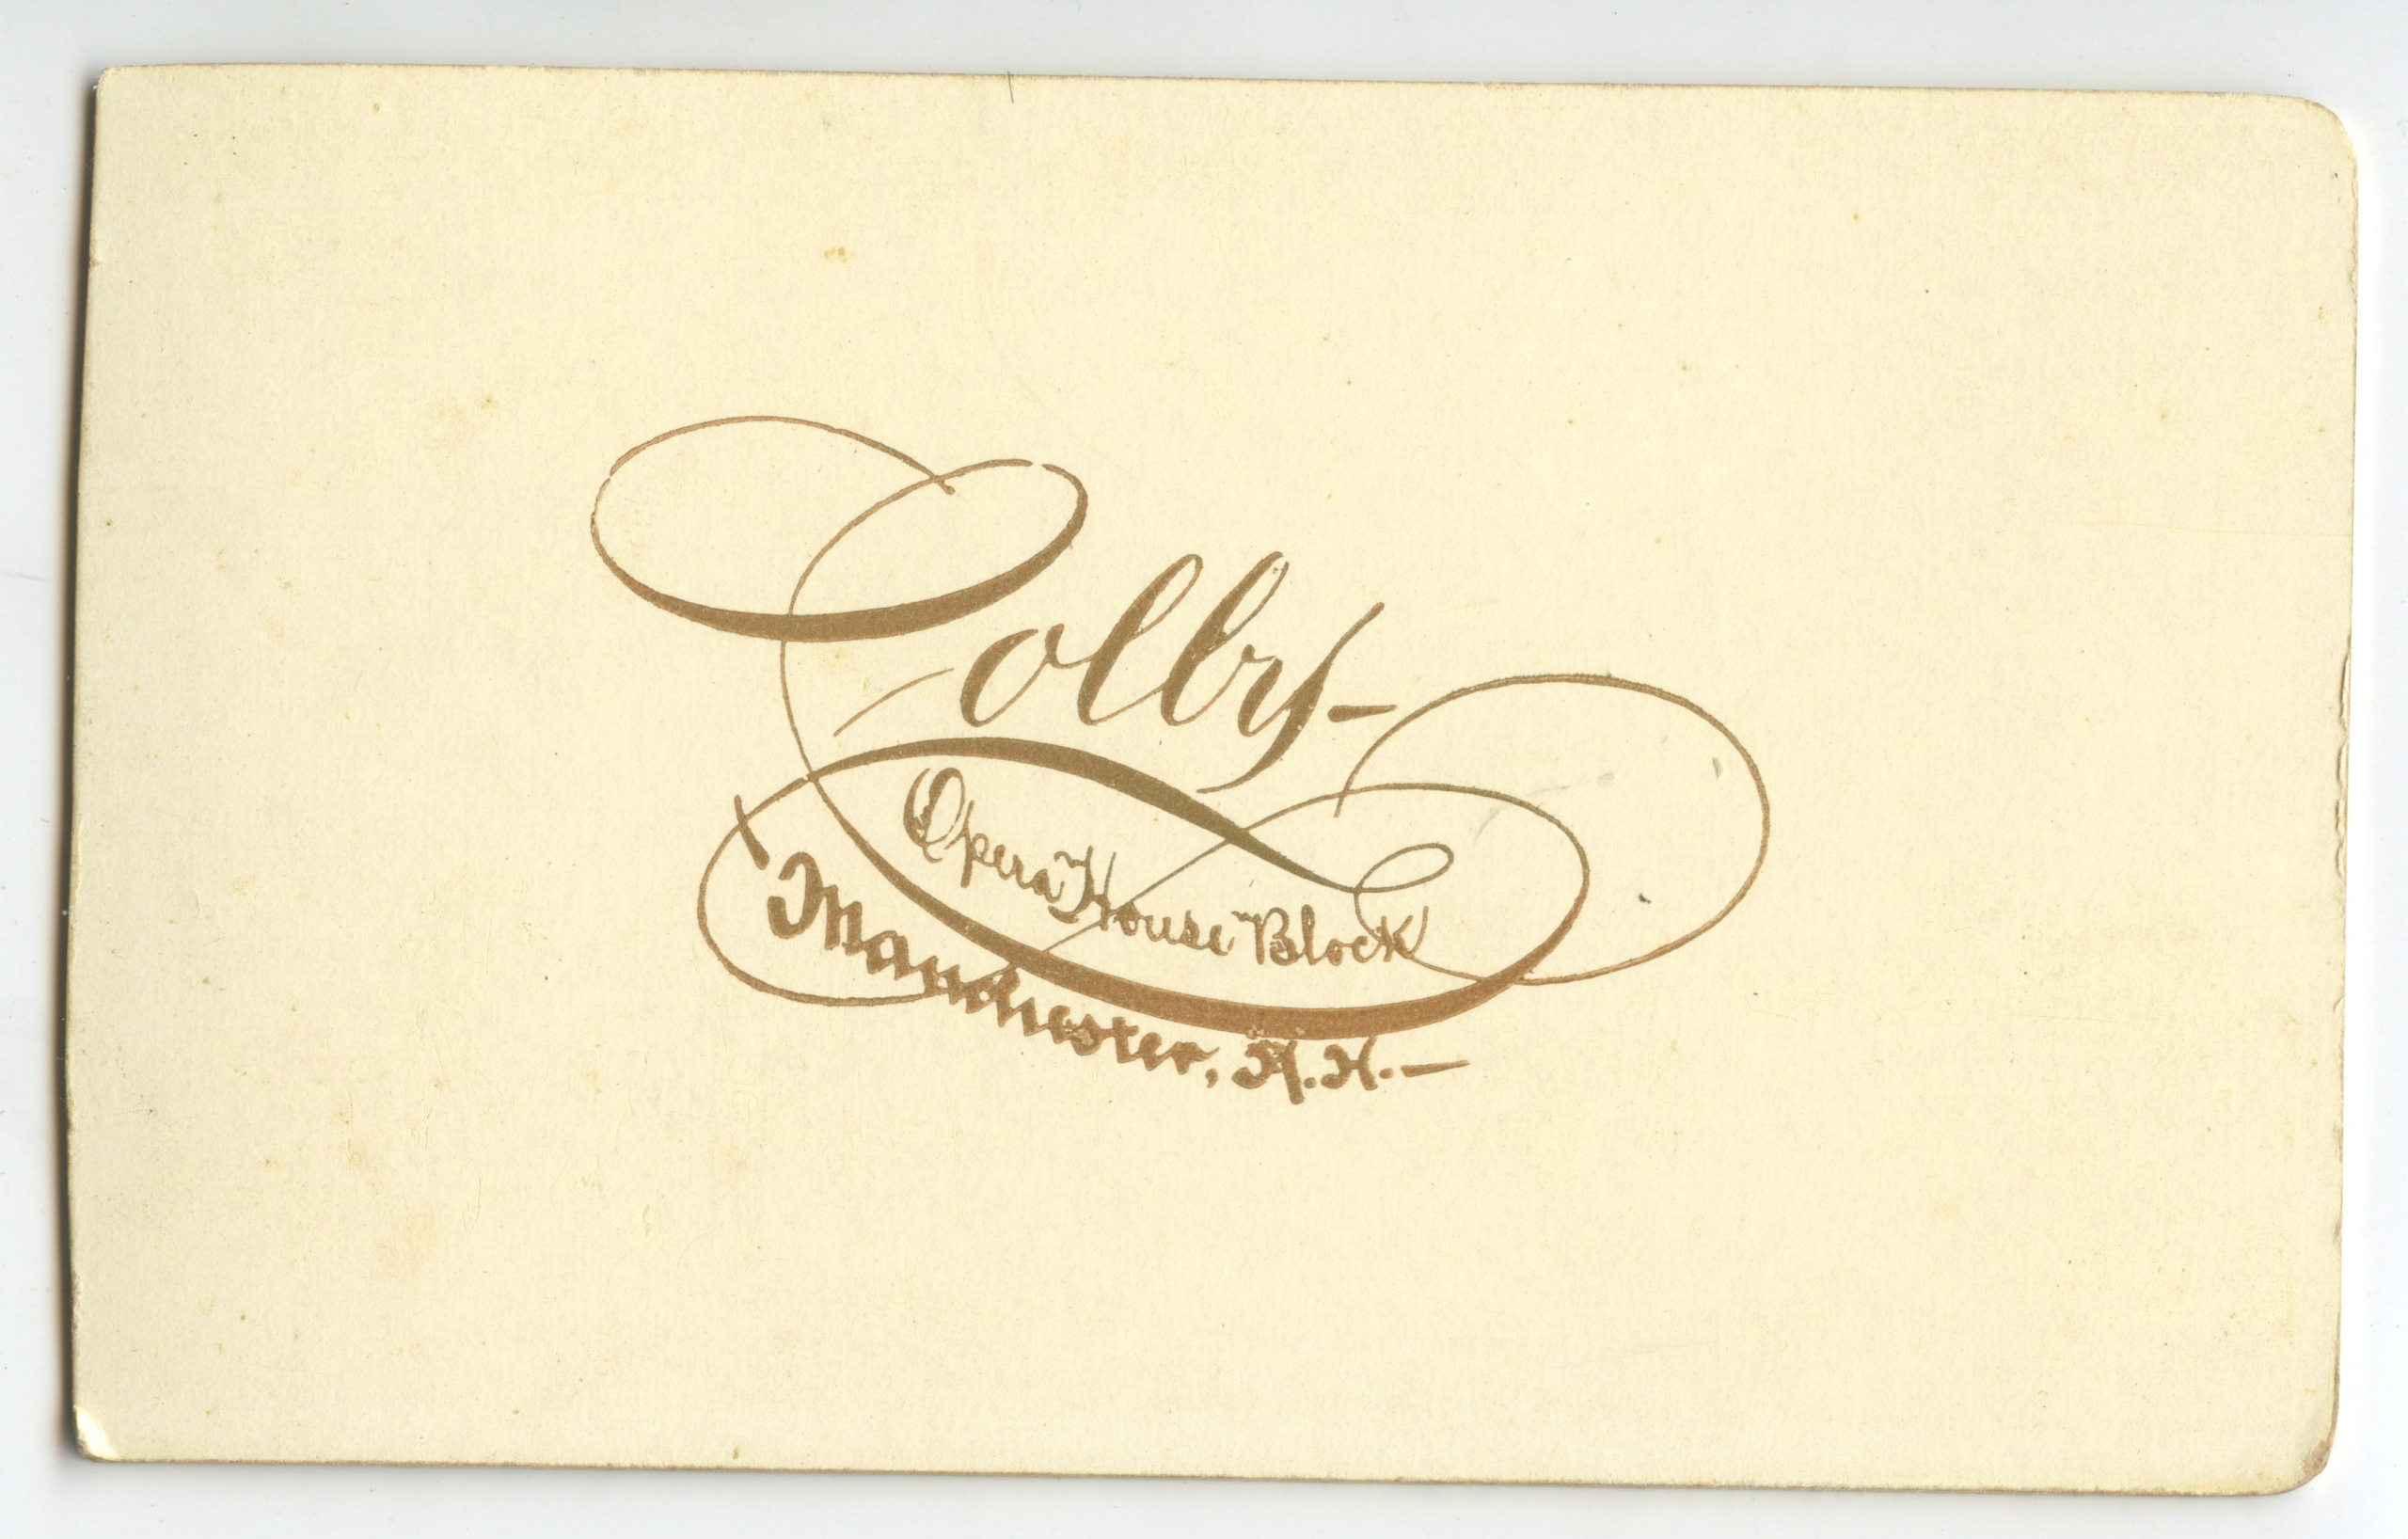 Colby-
Opera House Block
Manchester, N.H.-